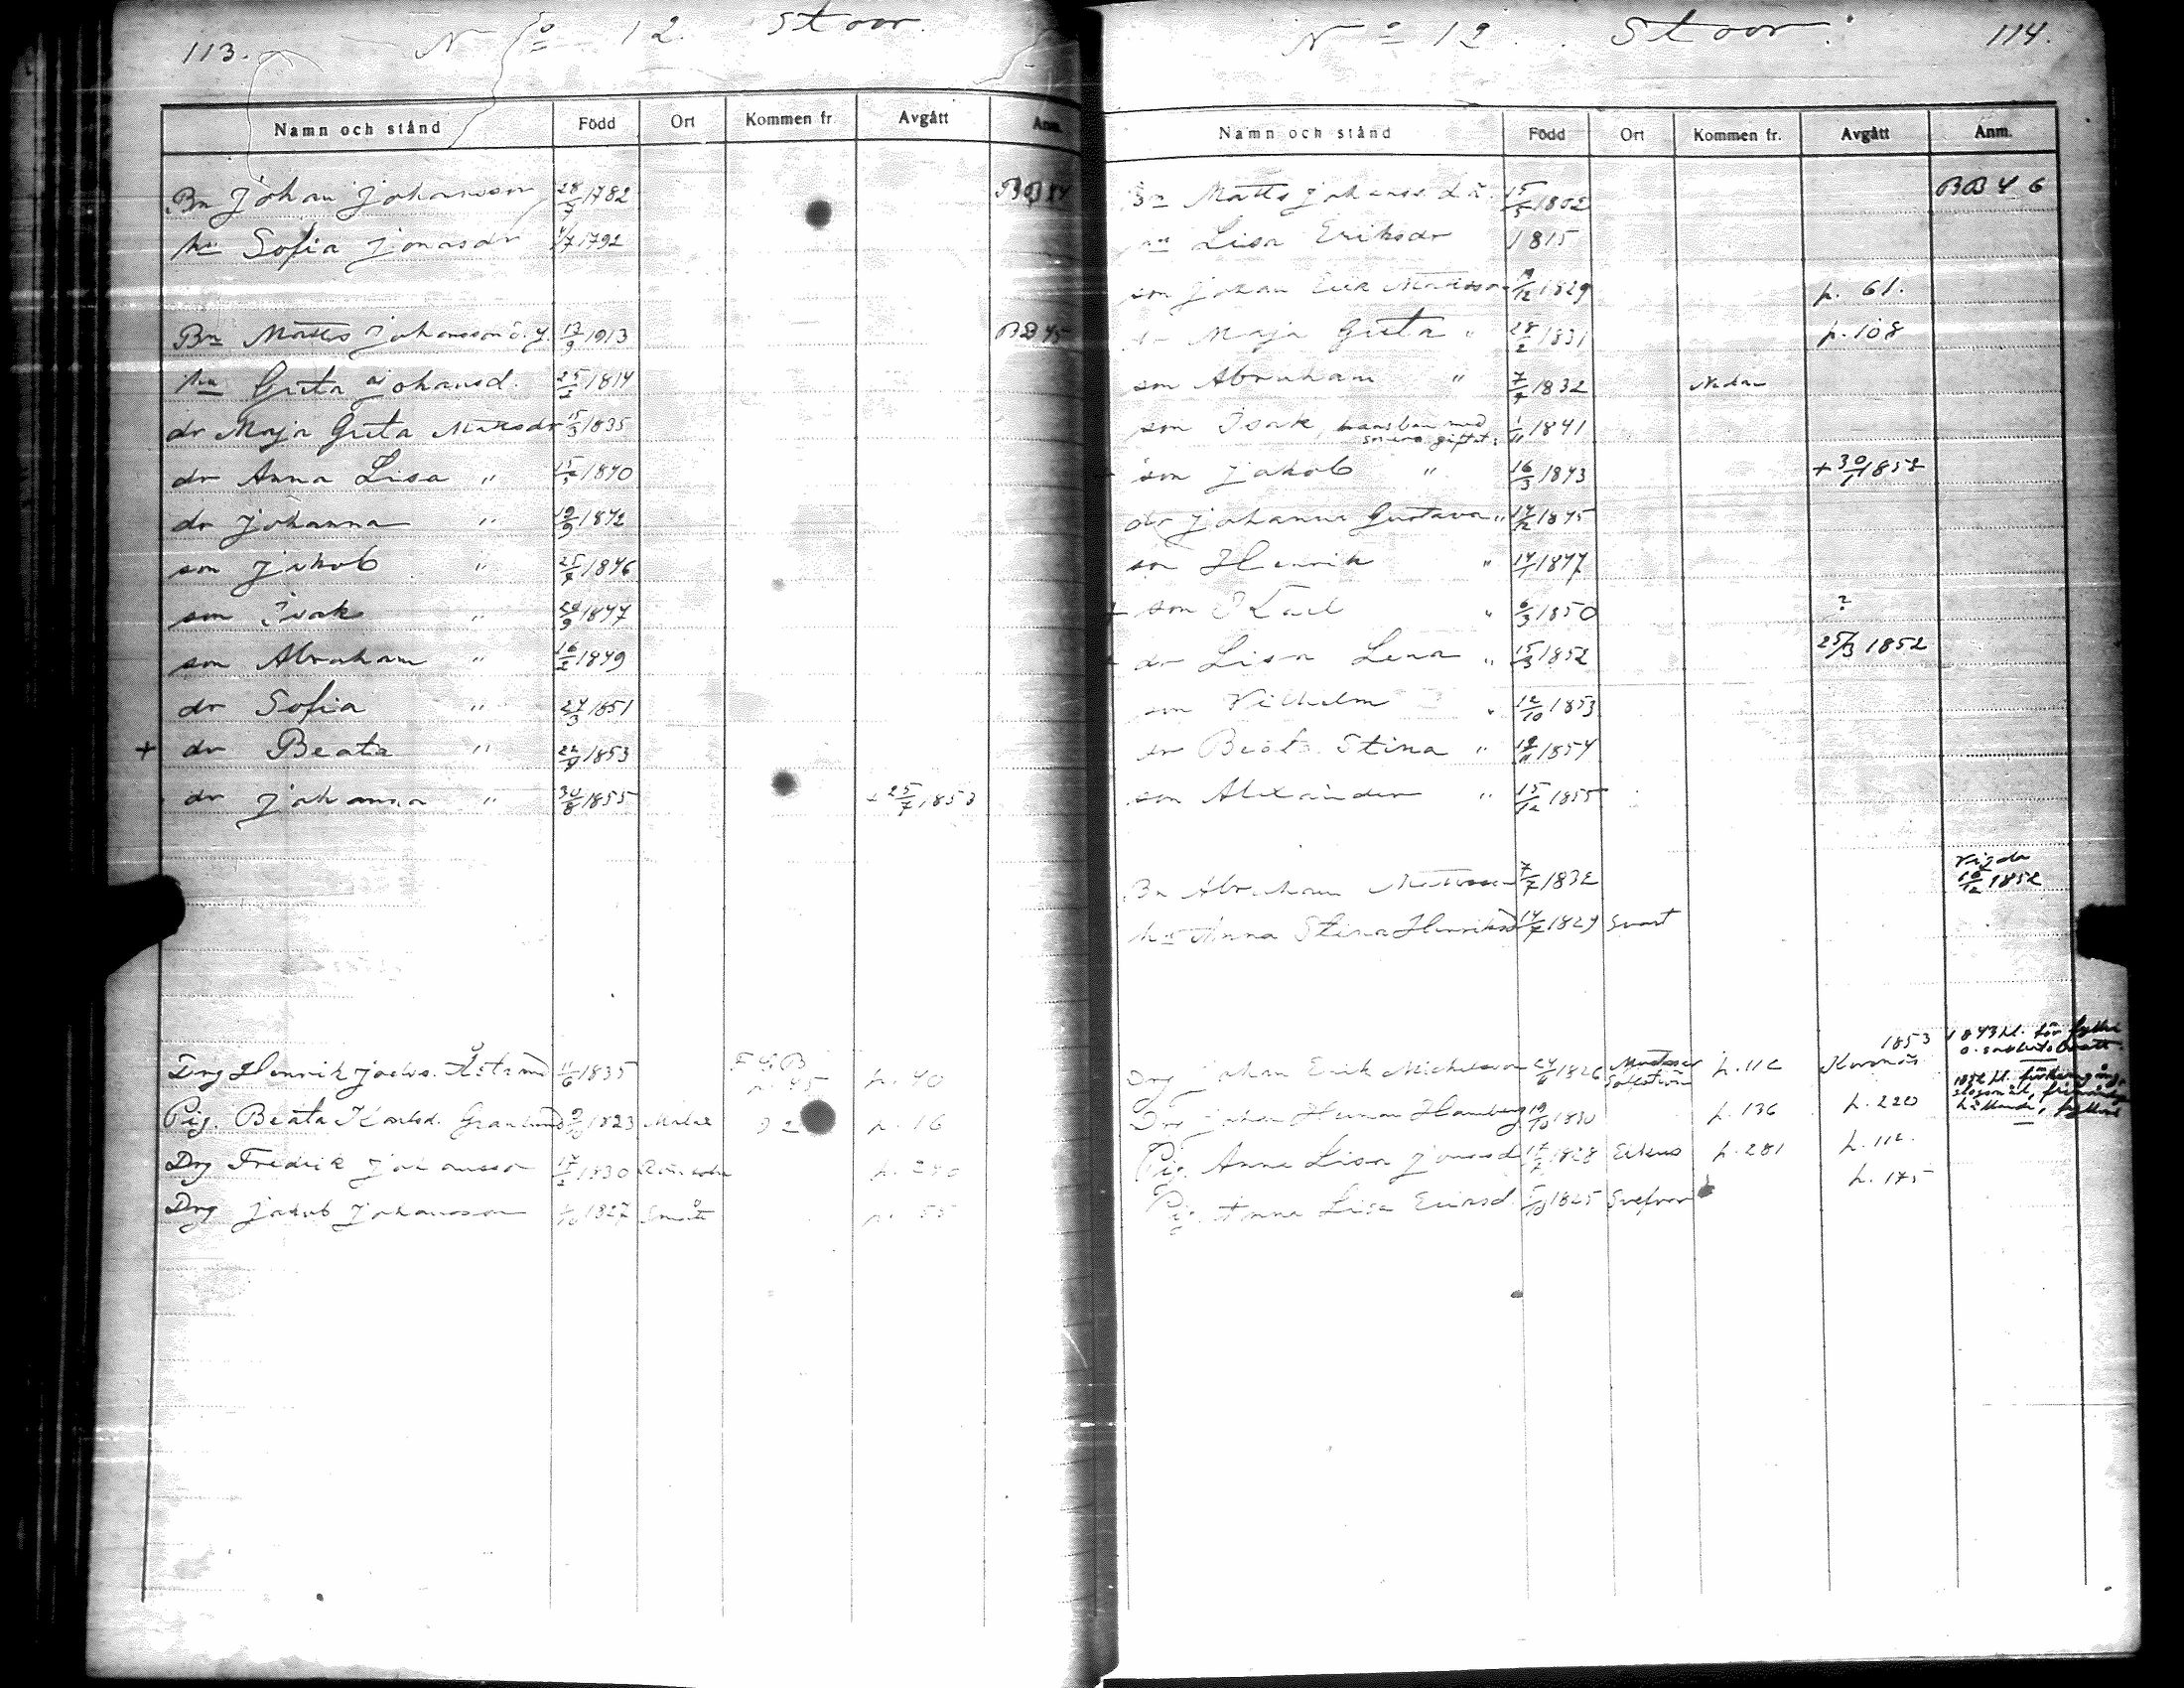 113. No 12. Stoor.
Namn och stånd Född Ort Kommen fr Avgått Anm.
Bn Johan Johansson 28/7 1782 BB 44
hu Sofia Jonasdr 1792
Bn Matts Johansson d. y. 13/9 1913 BB 45
hu Greta Johansd. 25/2 1814
dr Maja Greta Matsdr 15/3 1835
dr Anna Lisa " 1840
dr Johanna " 19/9 1842
son Jakob " 25/7 1846
son Isak " 29/9 1847
son Abraham " 16/2 1849
dr Sofia " 27/3 1851
+ dr Beata " 1853
dr Johanna " 30/8 1855 + 25/7 1853
Drg Henrik Jacobs. Åstrand 11/6 1835 p. 45 p. 40
Pig. Beata Karlsd. Granlund 1823 p. 16
Drg Fredrik Johansson 17/2 1830 p. 240
Drg Jakob Johansson 1827 Smått p. 55
No 12. Stoor. 114.
Namn och stånd Född Ort Kommen fr. Avgått Anm.
Bn Matts Johanss. d. ä. 15/5 1802 BB 46
hu Lisa Eriksdr 1815
son Johan Erik Mattsson 1829 p. 61.
dr Maja Greta " 28/2 1831 p. 108
son Abraham " 7/7 1832 Nedan
son Isak, 1/11 1841
son Jakob " 16/3 1843 + 30/1 1858
dr Johanna Gustava " 14/12 1845
son Henrik " 1847
+ son Karl " 6/3 1850 ?
dr Lisa Lena " 15/3 1852 25/3 1852
son Vilhelm " 12/10 1853
dr Beata Stina " 19/11 1854
son Alexander " 15/12 1855
Bn Abraham Mattsson 7/7 1832 Vigda 1852
hu Anna Stina Henriksd 14/7 1829 Svart
Drg Johan Erik Michelsson 24/6 1826 p. 112 1853 Korsnäs 1843
Drg Johan Herman Hamberg 19/10 1830 p. 136 p. 220
Pig. Anna Lisa Jonasd 1828 Eikus p. 281 p. 112.
Pig. Anna Lisa Eriksd. 1825 p. 175